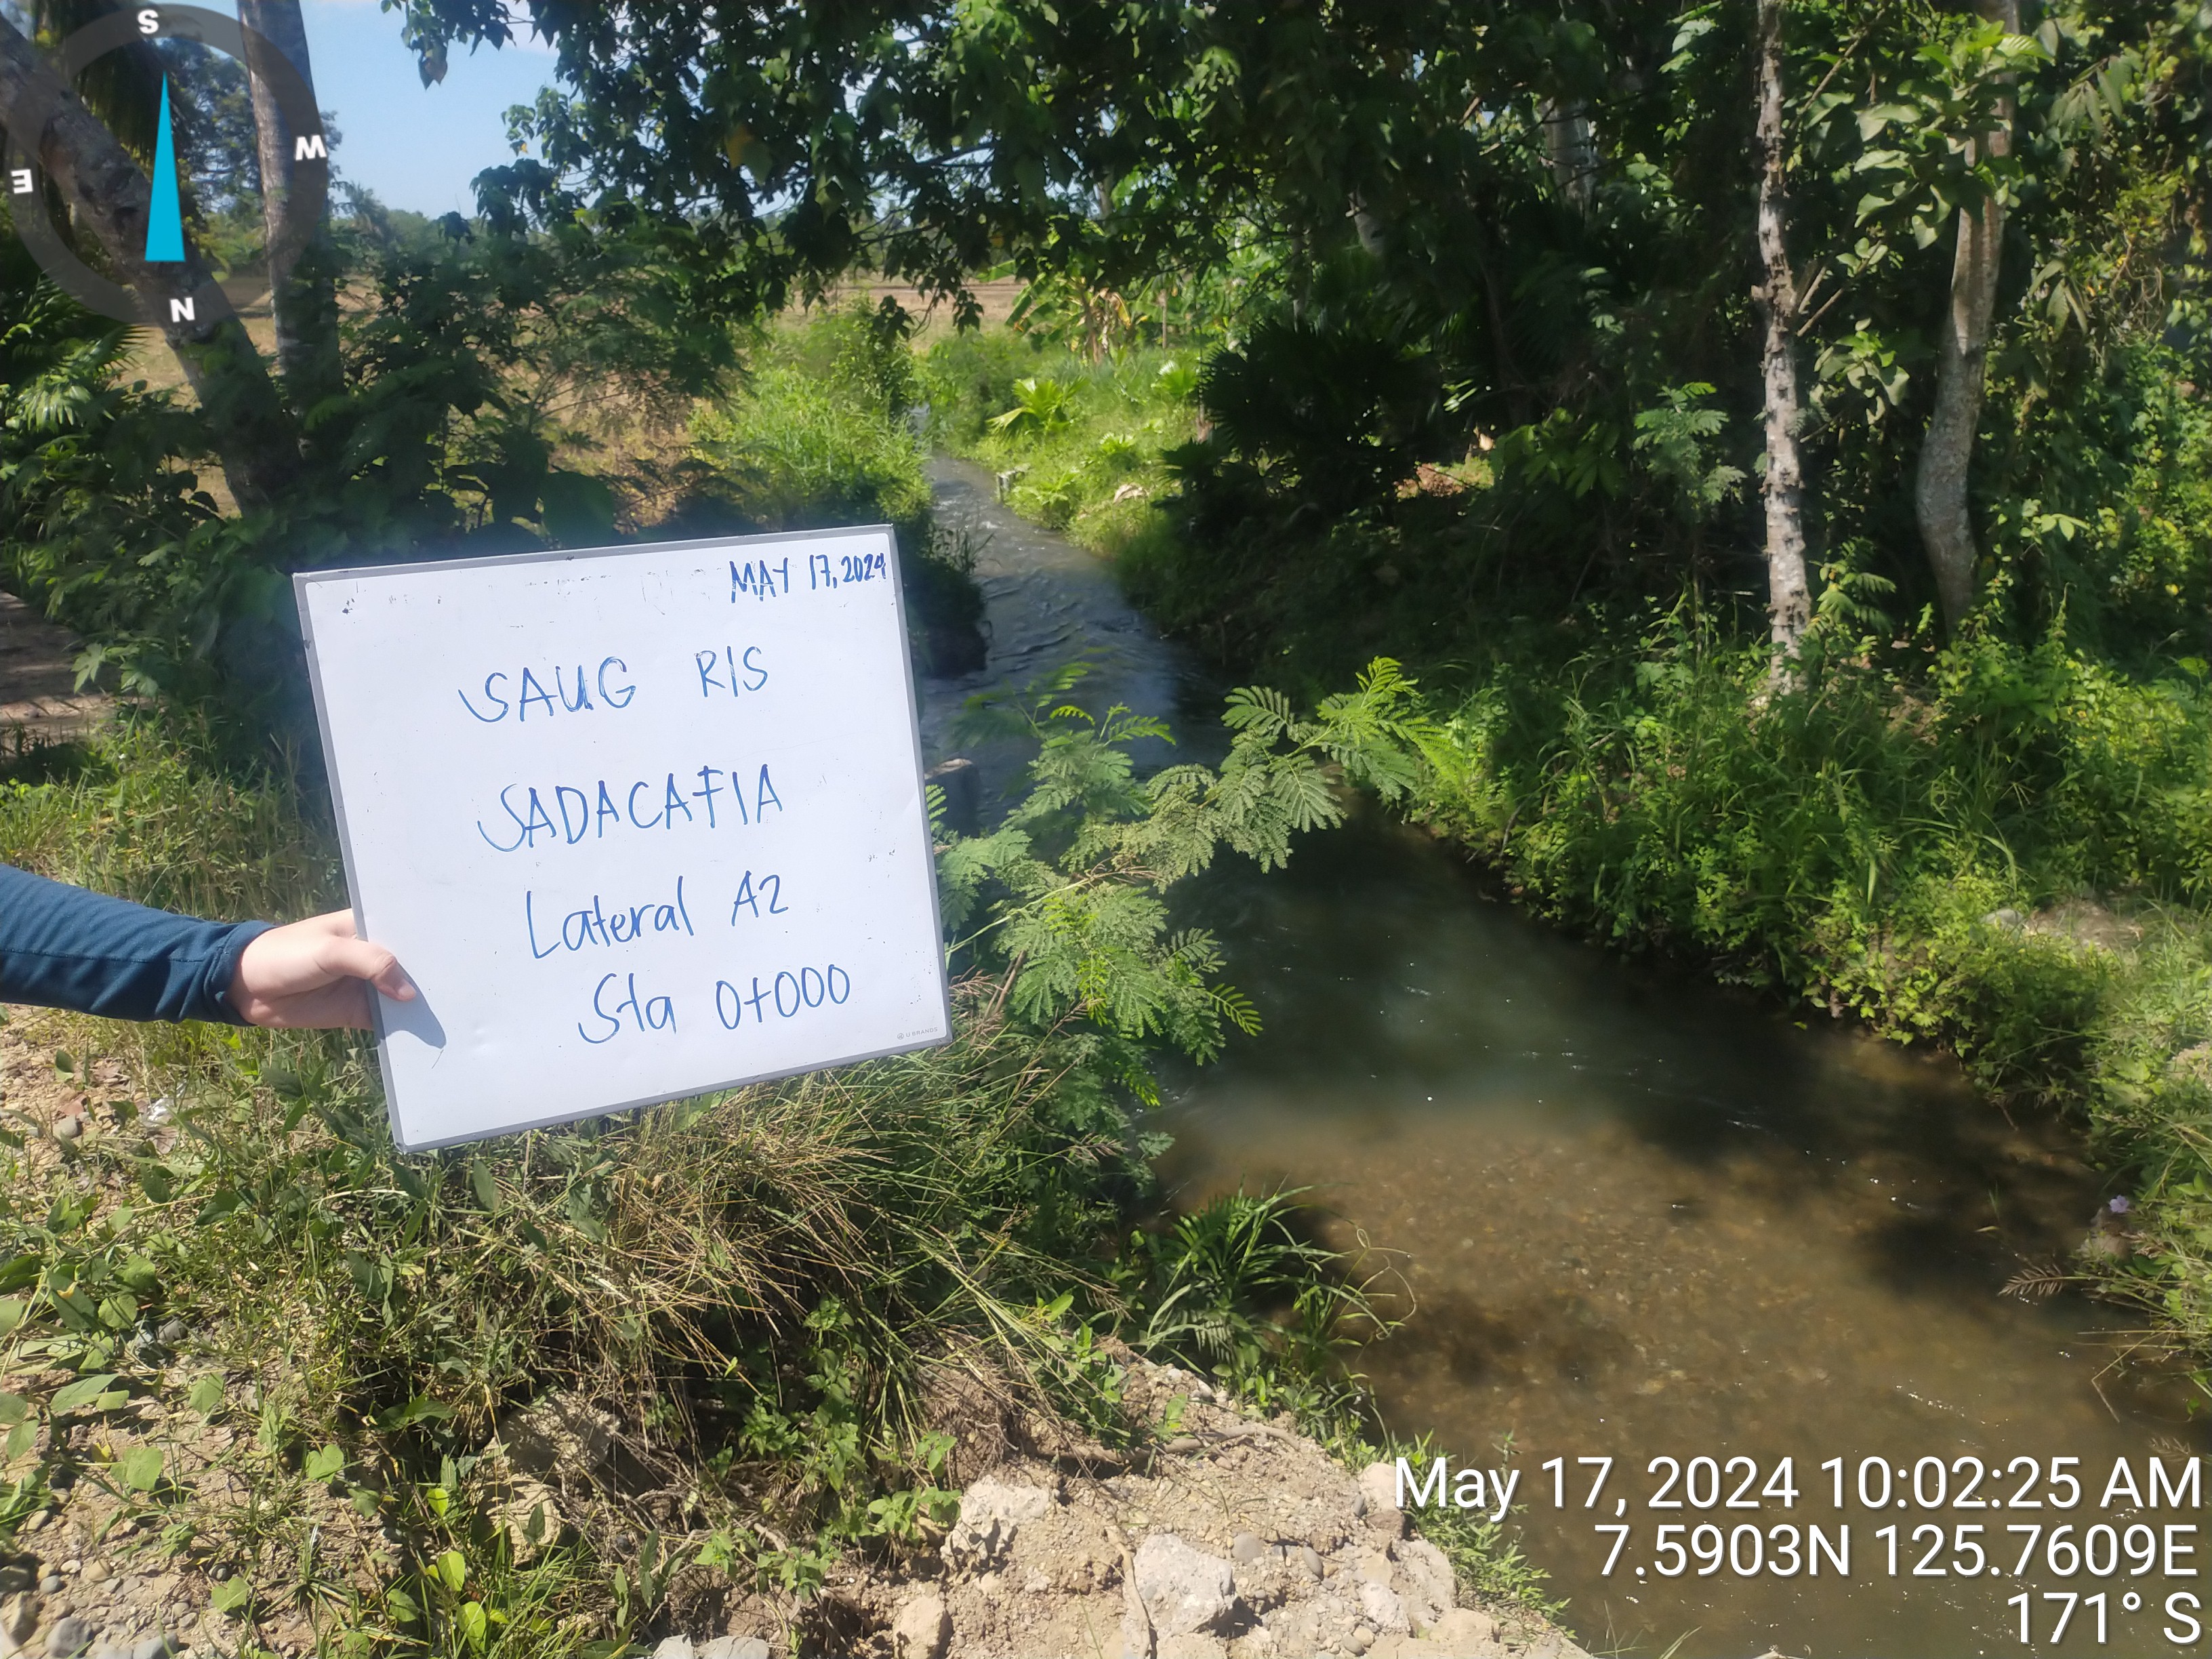 S
W
E
N
MAY 17, 2024
SAUG RIS
SADACAFIA
Lateral A2
Sta 0+000
U BRANDS
May 17, 2024 10:02:25 AM
7.5903N 125.7609E
171° S